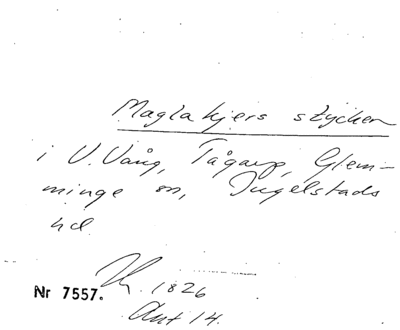 Maglakjers stycken
i V. Vång, Tågarp, Glem-
minge sn, Ingelstads
hd
1826
Nr 7557.
Ant 14.